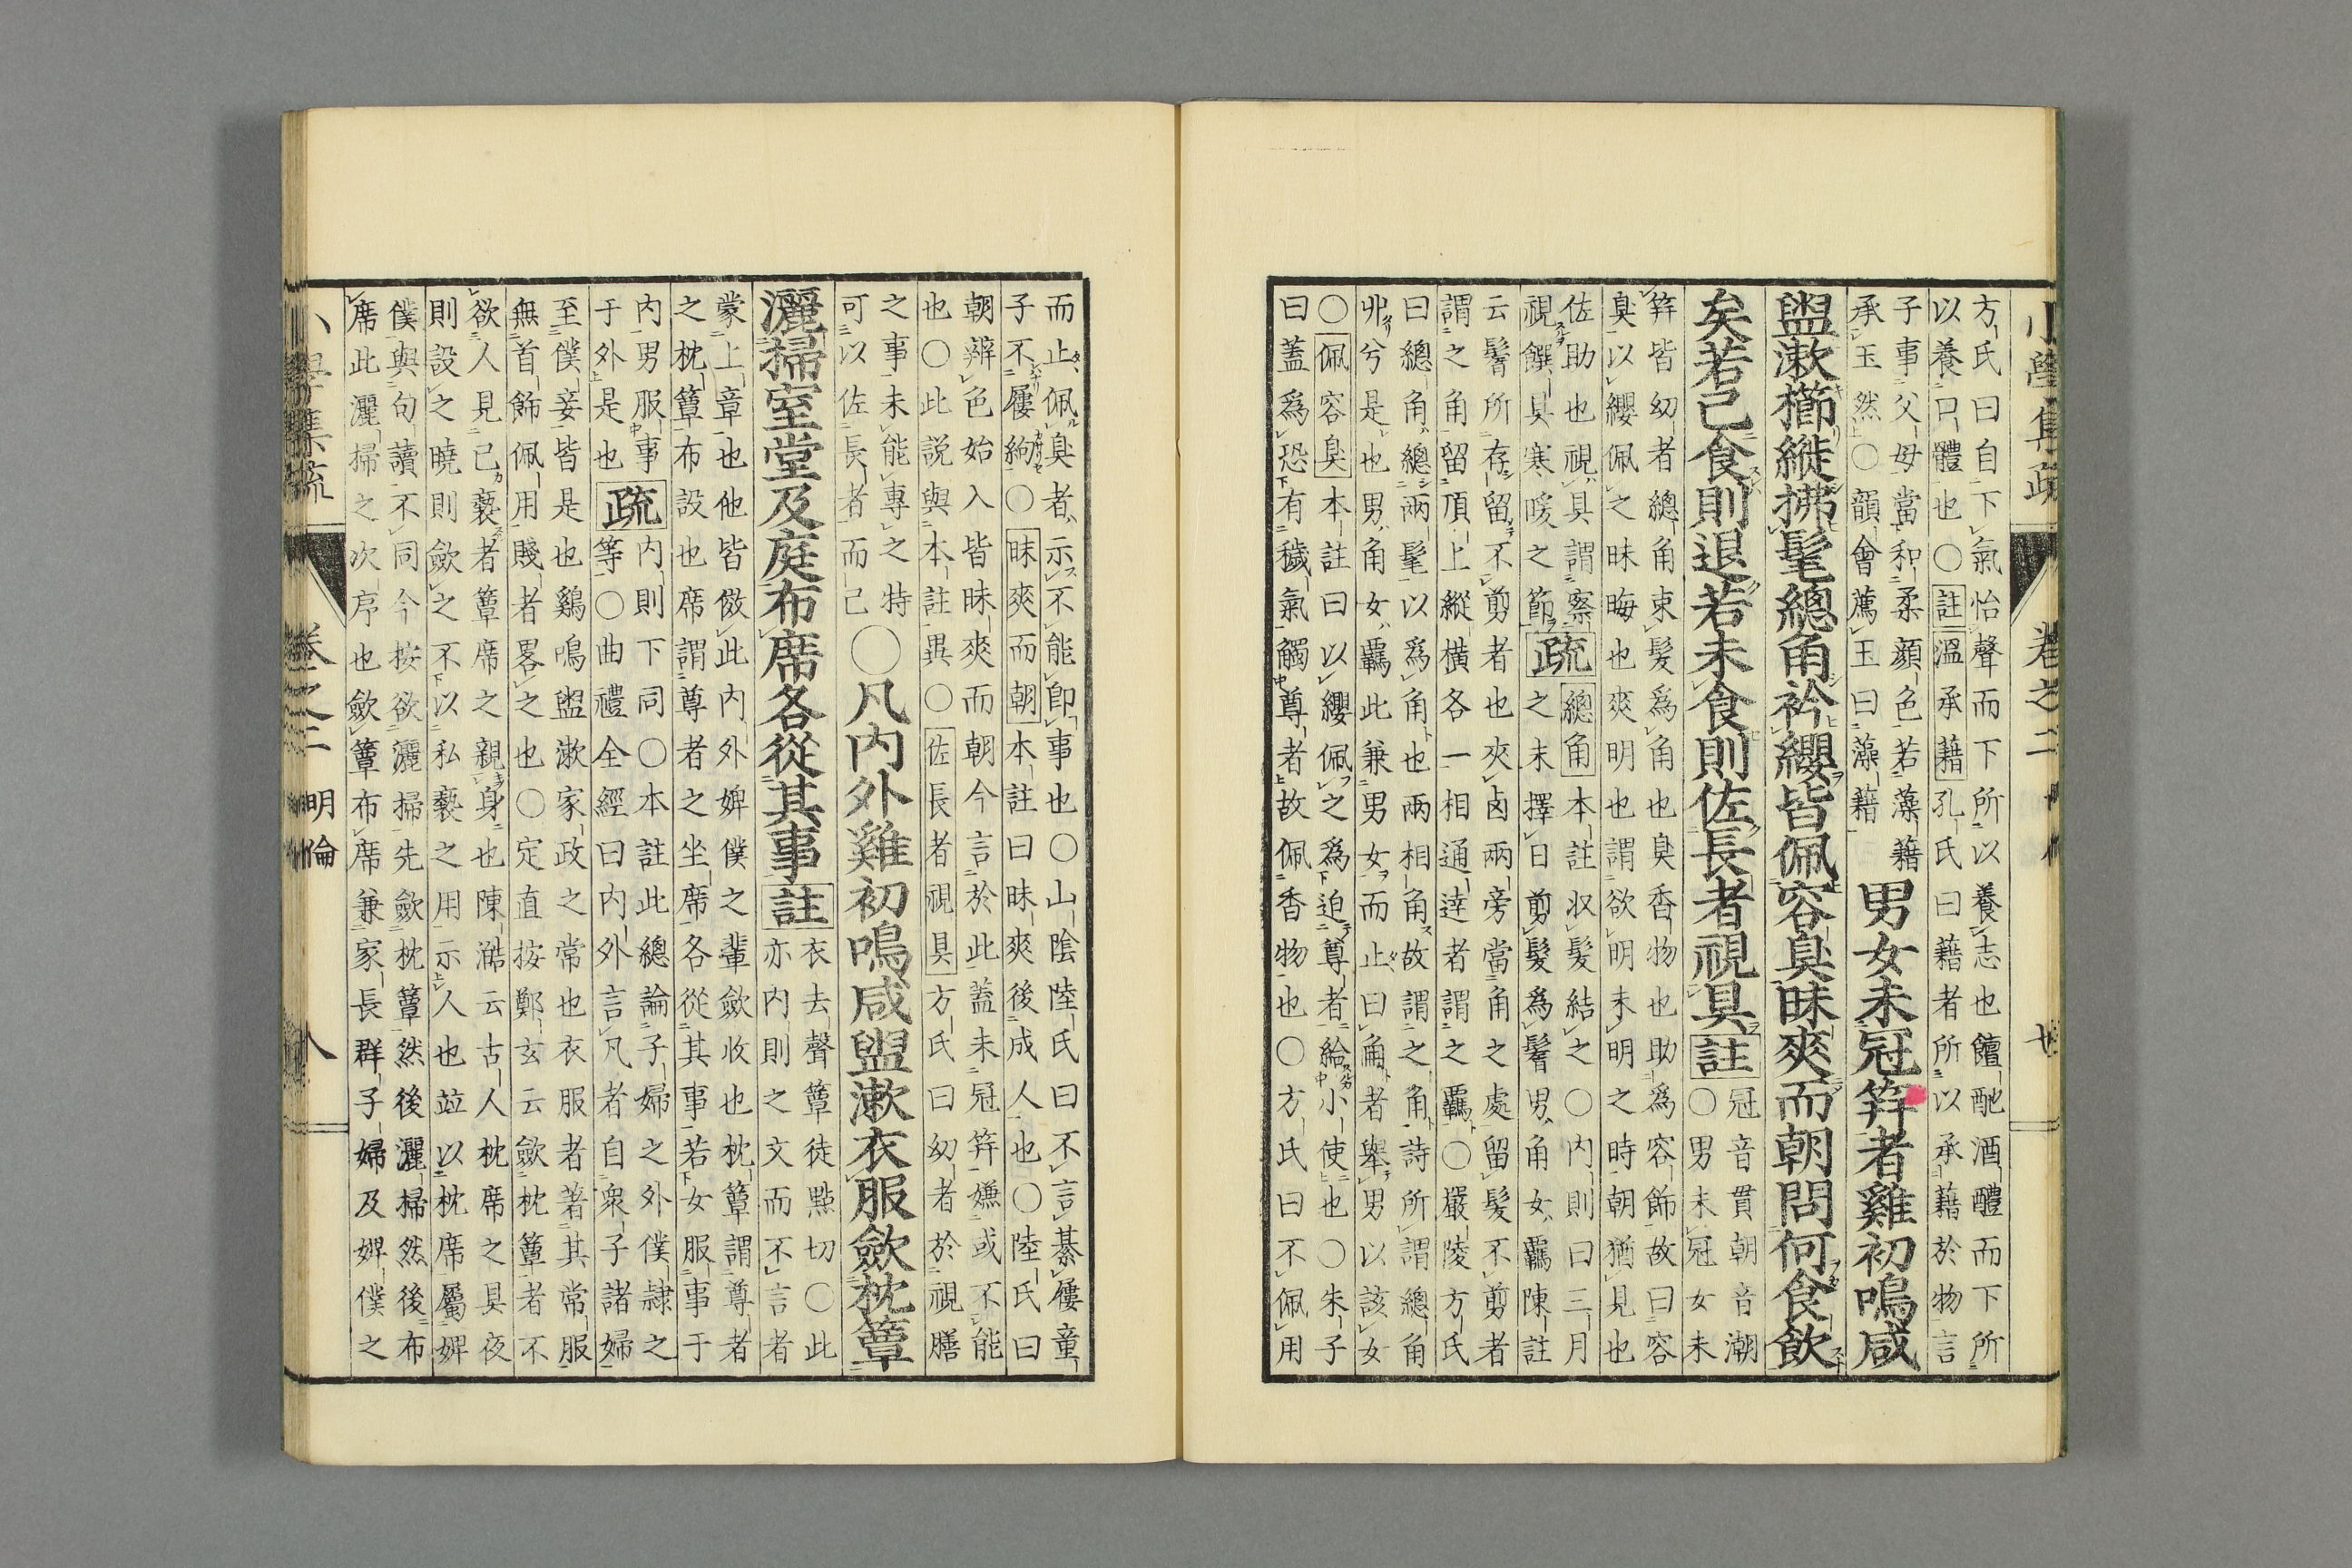 方氏曰自下氣怡聲而下所以養志也饘酏酒醴而下所
以養口體也○註溫承藉孔氏曰藉者所以承藉於物言
子事父母當和柔顏色若藻藉
承玉然○韻會薦玉曰藻藉
男女未冠笄者雞初鳴咸
盥漱櫛縰拂髦總角衿纓皆佩容臭昧爽而朝問何食飲
矣若已食則退若未食則佐長者視具註
冠音貫朝音潮
○男未冠女未
笄皆幼者總角束髮爲角也臭香物也助爲容飾故曰容
臭以纓佩之昧晦也爽明也謂欲明未明之時朝猶見也
佐助也視具謂察
視饌具寒暖之節
疏
總角本註收髮結之○內則曰三月
之末擇日剪髮爲鬌男角女羈陳註
云鬌所存留不剪者也夾囟兩旁當角之處留髮不剪者
謂之角留頂上縱橫各一相通達者謂之羈○嚴陵方氏
曰總角總兩髦以爲角也兩相角故謂之角詩所謂總角
丱兮是也男角女羈此兼男女而止曰角者舉男以該女
○佩容臭本註曰以纓佩之爲迫尊者給小使也○朱子
曰蓋爲恐有穢氣觸尊者故佩香物也○方氏曰不佩用
而止佩臭者示不能卽事也○山陰陸氏曰不言綦屨童
子不屨絇○昧爽而朝本註曰昧爽後成人也○陸氏曰
朝辨色始入皆昧爽而朝今言於此蓋未冠笄嫌或不能
也○此説與本註異○佐長者視具方氏曰幼者於視膳
之事未能專之特
可以佐長者而已
○凡內外雞初鳴咸盥漱衣服斂枕簟
灑掃室堂及庭布席各從其事註
衣去聲簟徒點切○此
亦內則之文而不言者
蒙上章也他皆倣此內外婢僕之輩斂收也枕簟謂尊者
之枕簟布設也席謂尊者之坐席各從其事若女服事于
內男服事
于外是也
疏
內則下同○本註此總論子婦之外僕隷之
等○曲禮全經曰內外言凡者自衆子諸婦
至僕妾皆是也鷄鳴盥漱家政之常也衣服者著其常服
無首飾佩用賤者畧之也○定直按鄭玄云斂枕簟者不
欲人見己褻者簟席之親身也陳澔云古人枕席之具夜
則設之曉則斂之不以私褻之用示人也竝以枕席屬婢
僕與句讀不同今按欲灑掃先斂枕簟然後灑掃然後布
席此灑掃之次序也斂簟布席兼家長群子婦及婢僕之
卷之二 明倫